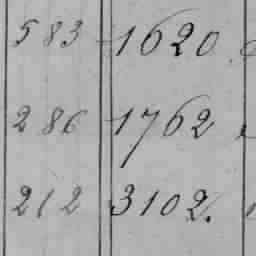 583 1620
286 1762
212 3102.